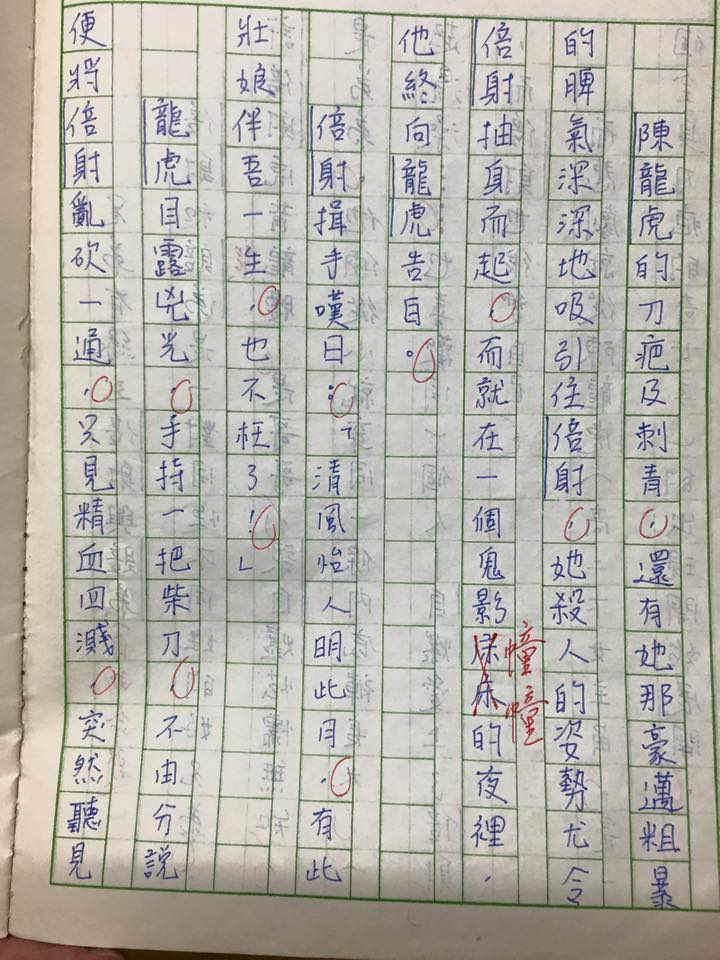 陳龍虎的刀疤及刺青，還有她那豪邁粗暴
的脾氣深深地吸引住倍射，她殺人的姿勢尤令
倍射抽身而起，而就在一個鬼影床床的夜裡，
幢幢
他終向龍虎告白。
倍射揖手嘆曰：「清風怡人明此月，有此
壯娘伴吾一生，也不枉了！」
龍虎目露兇光，手持一把柴刀，不由分說
便將倍射亂砍一通，只見精血四濺，突然聽見